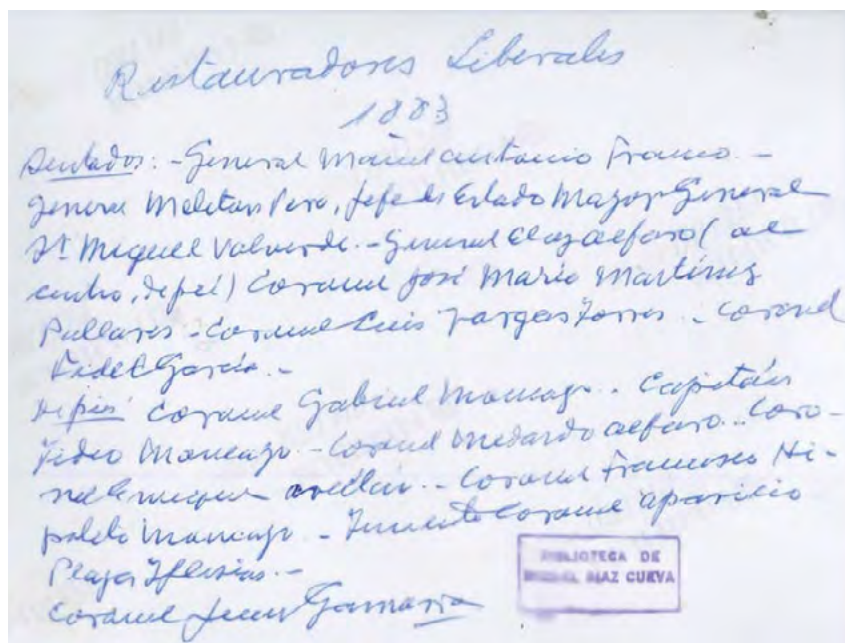 Restauradores Liberales
1883
Sentados: - General Manuel Antonio Franco. -
General Meliton Vera, Jefe de Estado Mayor General
Dr Miguel Valverde. - General Eloy Alfaro ( al
centro, de pié) Coronel José María Martínez
Pallares - Coronel Luis Vargas Torres. - Coronel
Fidel García. -
De pié: Coronel Gabriel Moncayo. - Capitán
Pedro Moncayo. - Coronel Medardo Alfaro. - Coro-
nel Enrique Avellán. - Coronel Francisco Hi-
pólito Moncayo. - Teniente Coronel Aparicio
Plaza Iglesias. -
Coronel Gamarra
BIBLIOTECA DE
DIAZ CUEVA